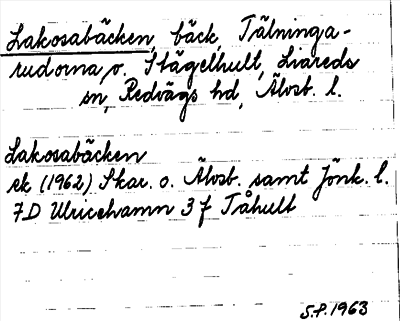 Lakosabäcken, bäck, Tälninga-
rudorna o. Stägelhult, Liareds
sn, Redvägs hd, Älvsb. l.
Lakosabäcken
ek (1962) Skar. o. Älvsb. samt Jönk. l.
7D Ulricehamn 3 f Tåhult
S.P. 1963